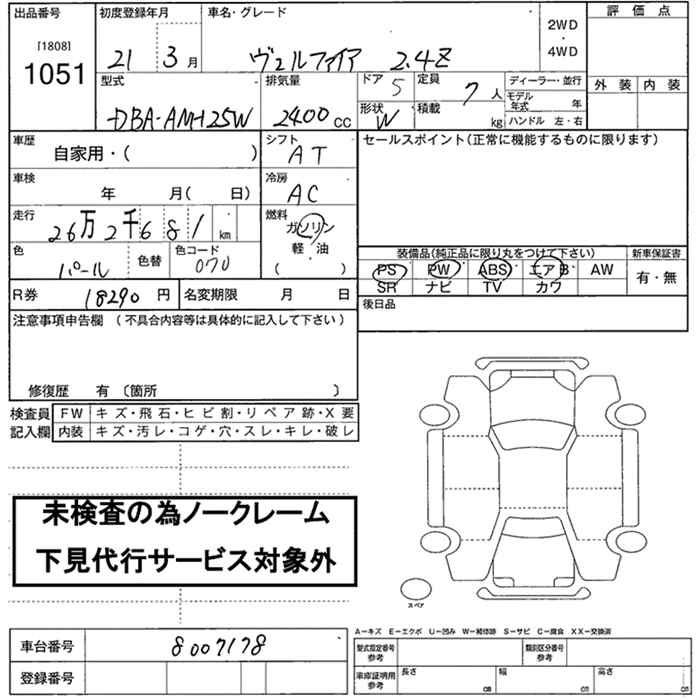 出品番号 初度登録年月 車名・グレード 評価点
[1808] 2WD
1051 21 3月 ヴェルファイア 2.4Z 4WD
型式 排気量 ドア 5 定員 7人 ディーラー・並行 外装 内装
DBA-ANH25W 2400cc 形状 W 積載 kg モデル年式 年
ハンドル 左・右
車歴 自家用・( ) シフト AT セールスポイント(正常に機能するものに限ります)
車検 年 月( 日) 冷房 AC
走行 26万2千681km 燃料 ガソリン
軽・油
( )
色 パール 色替 色コード 070
装備品(純正品に限り丸をつけて下さい) 新車保証書
PS PW ABS エアB AW 有・無
SR ナビ TV カワ
R券 18290円 名変期限 月 日 後日品
注意事項申告欄 (不具合内容等は具体的に記入して下さい)
修復歴 有 〔箇所 〕
検査員 FW キズ・飛石・ヒビ割・リペア跡・X要
記入欄 内装 キズ・汚レ・コゲ・穴・スレ・キレ・破レ
未検査の為ノークレーム
下見代行サービス対象外
スペア
A−キズ E−エクボ U−凹み W−補修跡 S−サビ C−腐食 XX−交換済
車台番号 8007178 型式指定番号 参考 類別区分番号 参考
登録番号 車庫証明用 参考 長さ cm 幅 cm 高さ cm